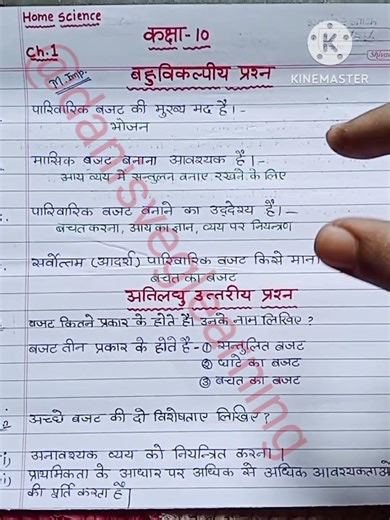 Home Science
कक्षा-10
Ch.1
KINEMASTER
M. Imp.
बहुविकल्पीय प्रश्न
पारिवारिक बजट की मुख्य मद है।-
भोजन
मासिक बजट बनाना आवश्यक है।-
आय व्यय में सन्तुलन बनाए रखने के लिए
पारिवारिक बजट बनाने का उद्देश्य है।-
बचत करना, आय का ज्ञान, व्यय पर नियन्त्रण
सर्वोत्तम (आदर्श) पारिवारिक बजट किसे माना
बचत का बजट
अतिलघु उत्तरीय प्रश्न
बजट कितने प्रकार के होते हैं। उनके नाम लिखिए ?
बजट तीन प्रकार के होते है - ① सन्तुलित बजट
② घाटे का बजट
③ बचत का बजट
अच्छे बजट की दो विशेषताए लिखिए ?
i) अनावश्यक व्यय को नियन्त्रित करना।
ii) प्राथमिकता के आधार पर अधिक से अधिक आवश्यकताओ
की पूर्ति करता है।